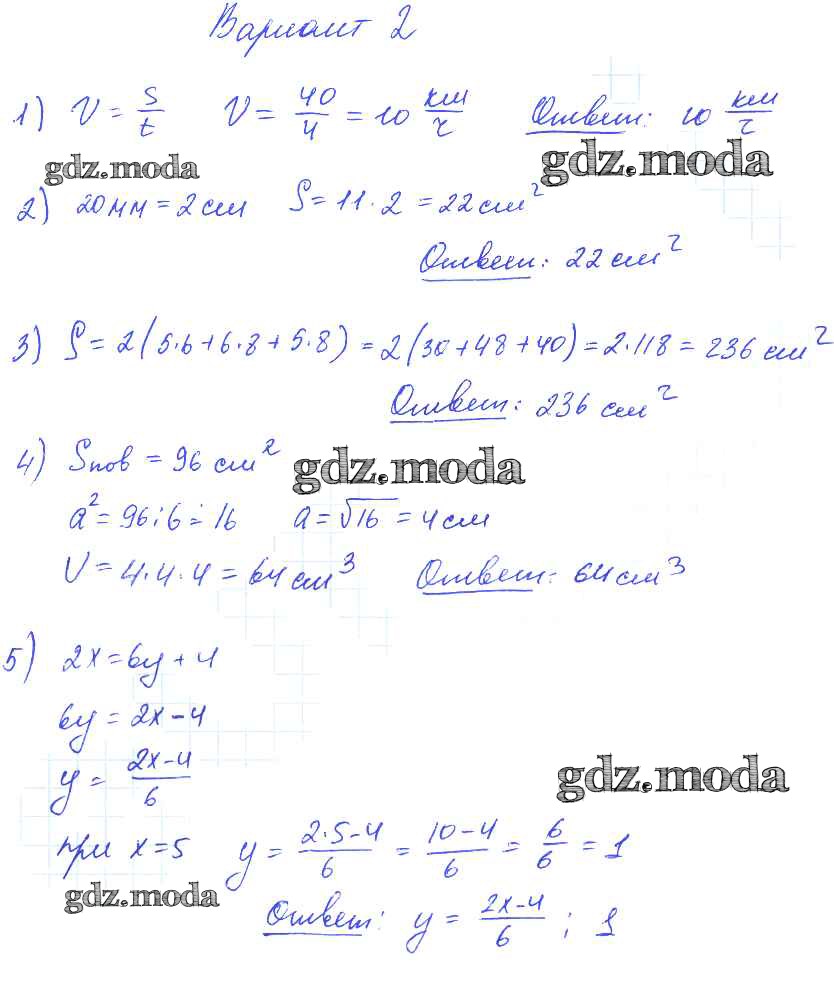 Вариант 2
1) V = S/t   V = 40/4 = 10 км/ч   Ответ: 10 км/ч
gdz.moda   gdz.moda
2) 20 мм = 2 см   S = 11 · 2 = 22 см²
Ответ: 22 см²
3) S = 2(5·6+6·8+5·8) = 2(30+48+40) = 2·118 = 236 см²
Ответ: 236 см²
4) Sпов = 96 см²   gdz.moda
a² = 96:6 = 16   a = √16 = 4 см
V = 4·4·4 = 64 см³   Ответ: 64 см³
5) 2x = 6y + 4
6y = 2x − 4
y = (2x−4)/6   gdz.moda
при x = 5   y = (2·5−4)/6 = (10−4)/6 = 6/6 = 1
gdz.moda
Ответ: y = (2x−4)/6 ; 1